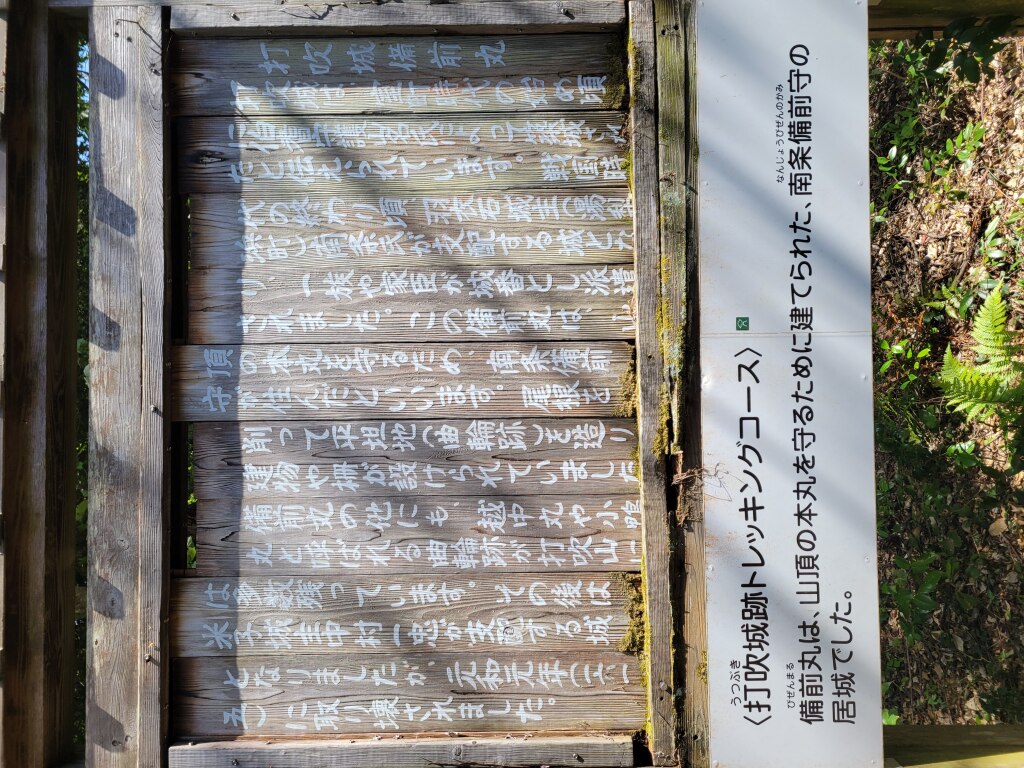 打吹城備前丸
打吹城は、室町時代の始め頃
に伯耆守護山名氏によって築城され
たと伝わられています。戦国時
代の終わり頃、羽衣石城主(湯梨
浜町)南条氏が支配する城とな
り、一族や家臣が城番とし派遣
されました。この備前丸は、山
頂の本丸を守るため、南条備前
守が住んだといいます。尾根を
削って平坦地(曲輪跡)を造り
建物や柵が設けられていました
備前丸の他にも、越中丸や小鴨
丸と呼ばれる曲輪跡が打吹山に
は多数残っています。その後は
米子城主中村一忠が支配する城
となりましたが、元和元年(一六一
五)に取り壊されました。
うつぶき
〈打吹城跡トレッキングコース〉
びぜんまる なんじょうびぜんのかみ
備前丸は、山頂の本丸を守るために建てられた、南条備前守の
居城でした。